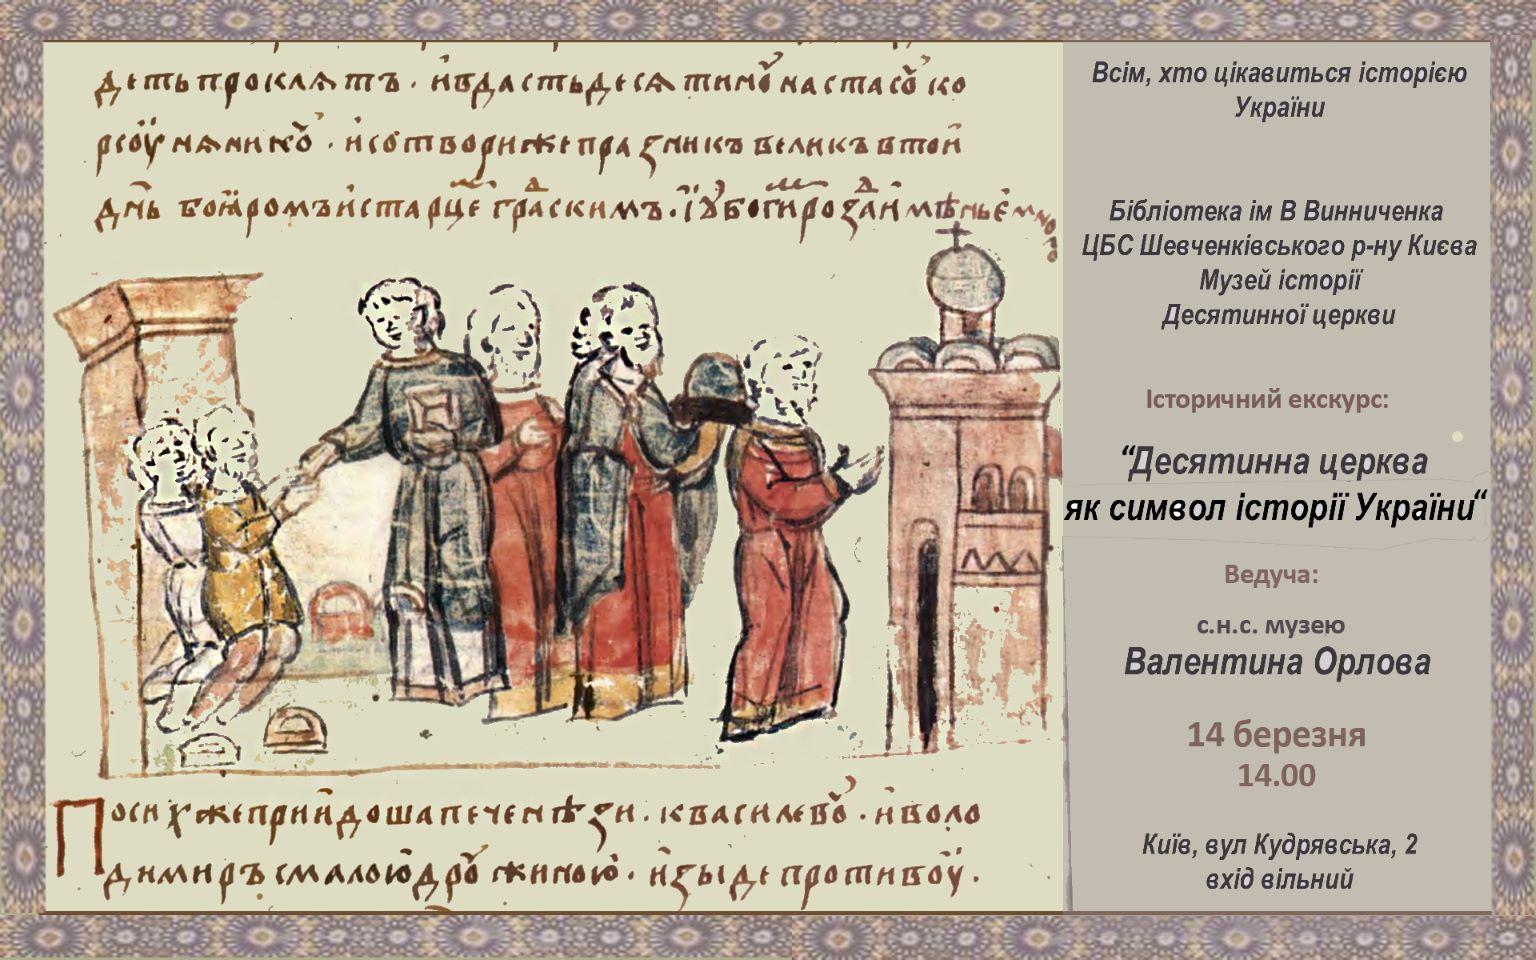 деть проклѧтъ · и҆ вдасть десѧтину настасу ко
рсоунѧнину · и҆ сотвориже празникъ великъ в той
дн҃ь боꙗромъ и҆ старцемъ градскимъ · і҆ убогимъ роздаи҆мѣньемн
По сихже прии҆доша печенѣзи · к василеву · и҆ воло
димиръ с малою дружиною · и҆зыде противоу ·
Всім, хто цікавиться історією
України
Бібліотека ім В Винниченка
ЦБС Шевченківського р-ну Києва
Музей історії
Десятинної церкви
Історичний екскурс:
“Десятинна церква
як символ історії України“
Ведуча:
с.н.с. музею
Валентина Орлова
14 березня
14.00
Київ, вул Кудрявська, 2
вхід вільний